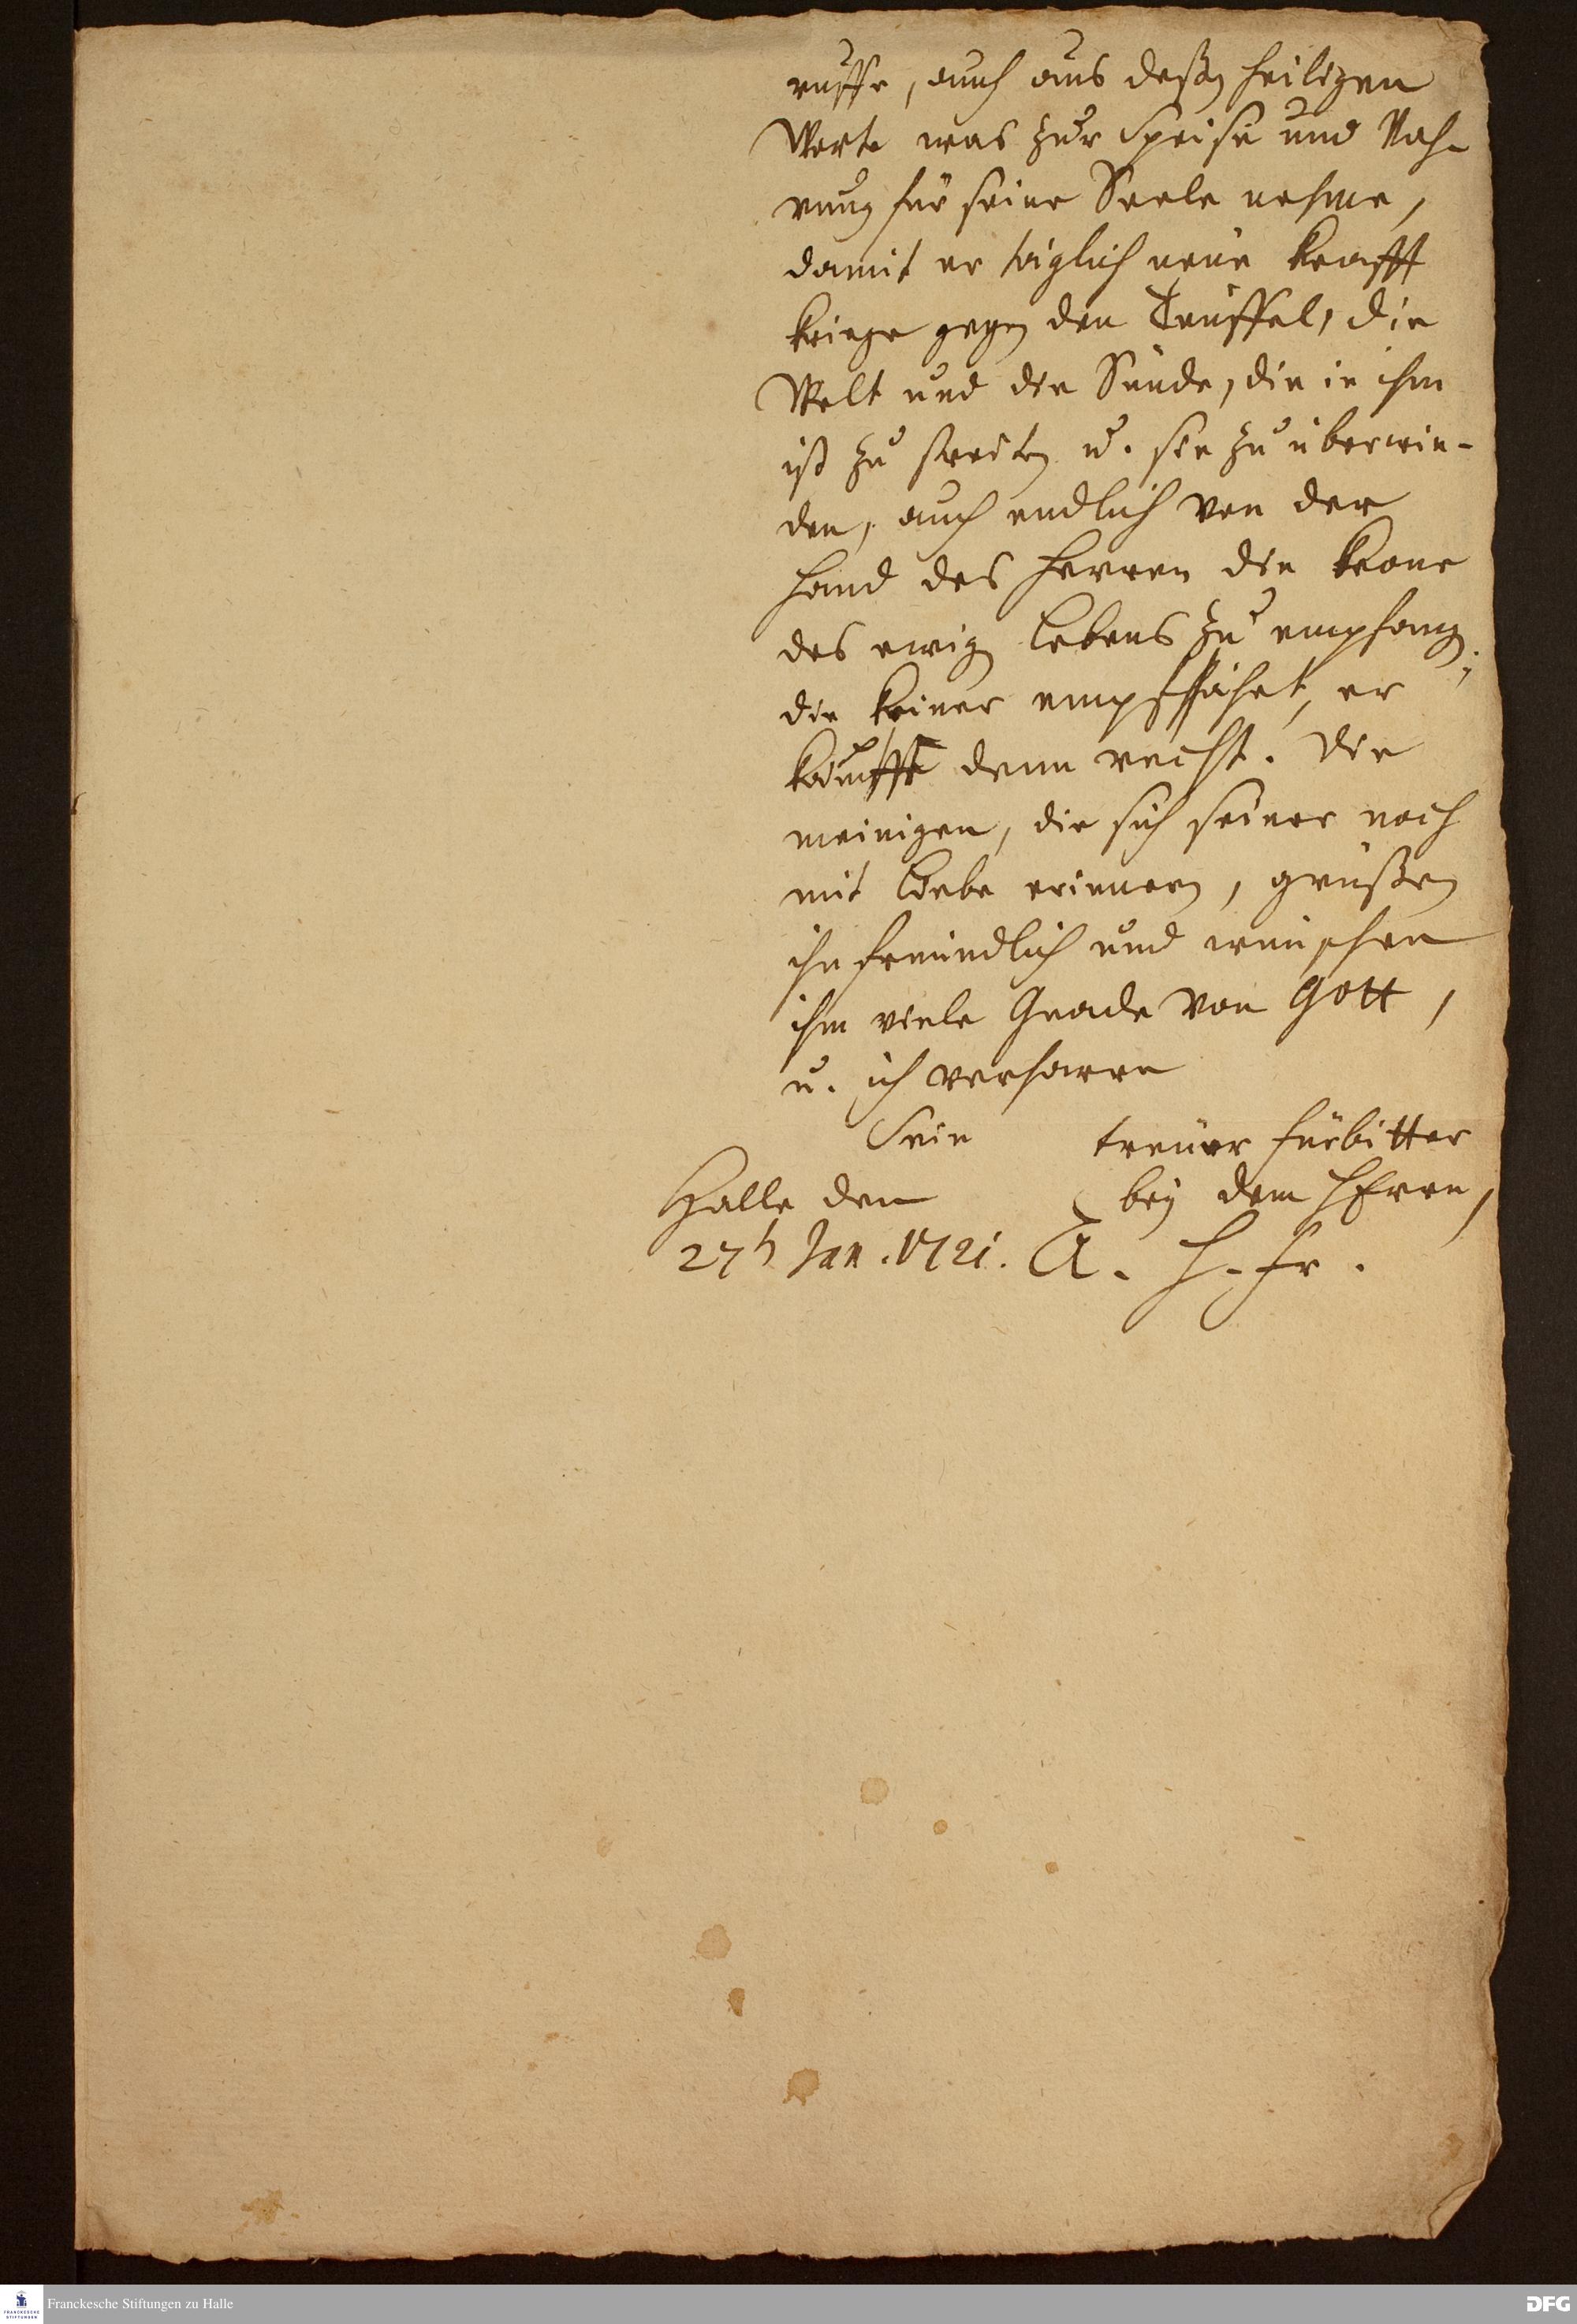 ruffe, auch aus deßen heiligen
Worte was zur Speise und Nah-
rung für seine Seele nehme,
damit er täglich neüe Krafft
kriege gegen den Teuffel, die
Welt und die Sünde, die in ihm
ist zu streiten u. sie zu überwin-
den, auch endlich von der
Hand des Herren die Krone
des ewigen Lebens zu empfangen;
die keiner empffähet, er
kämpffe denn recht. Die
meinigen, die sich seiner noch
mit Liebe erinnern, grüßen
ihn freundlich und wünschen
ihm viele Gnade von Gott,
u. ich verharre
Sein treüer Fürbitter
Halle den bey dem HErrn,
27 Jan. 1721. A. H. Fr.
Franckesche Stiftungen zu Halle
FRANCKESCHE STIFTUNGEN
DFG